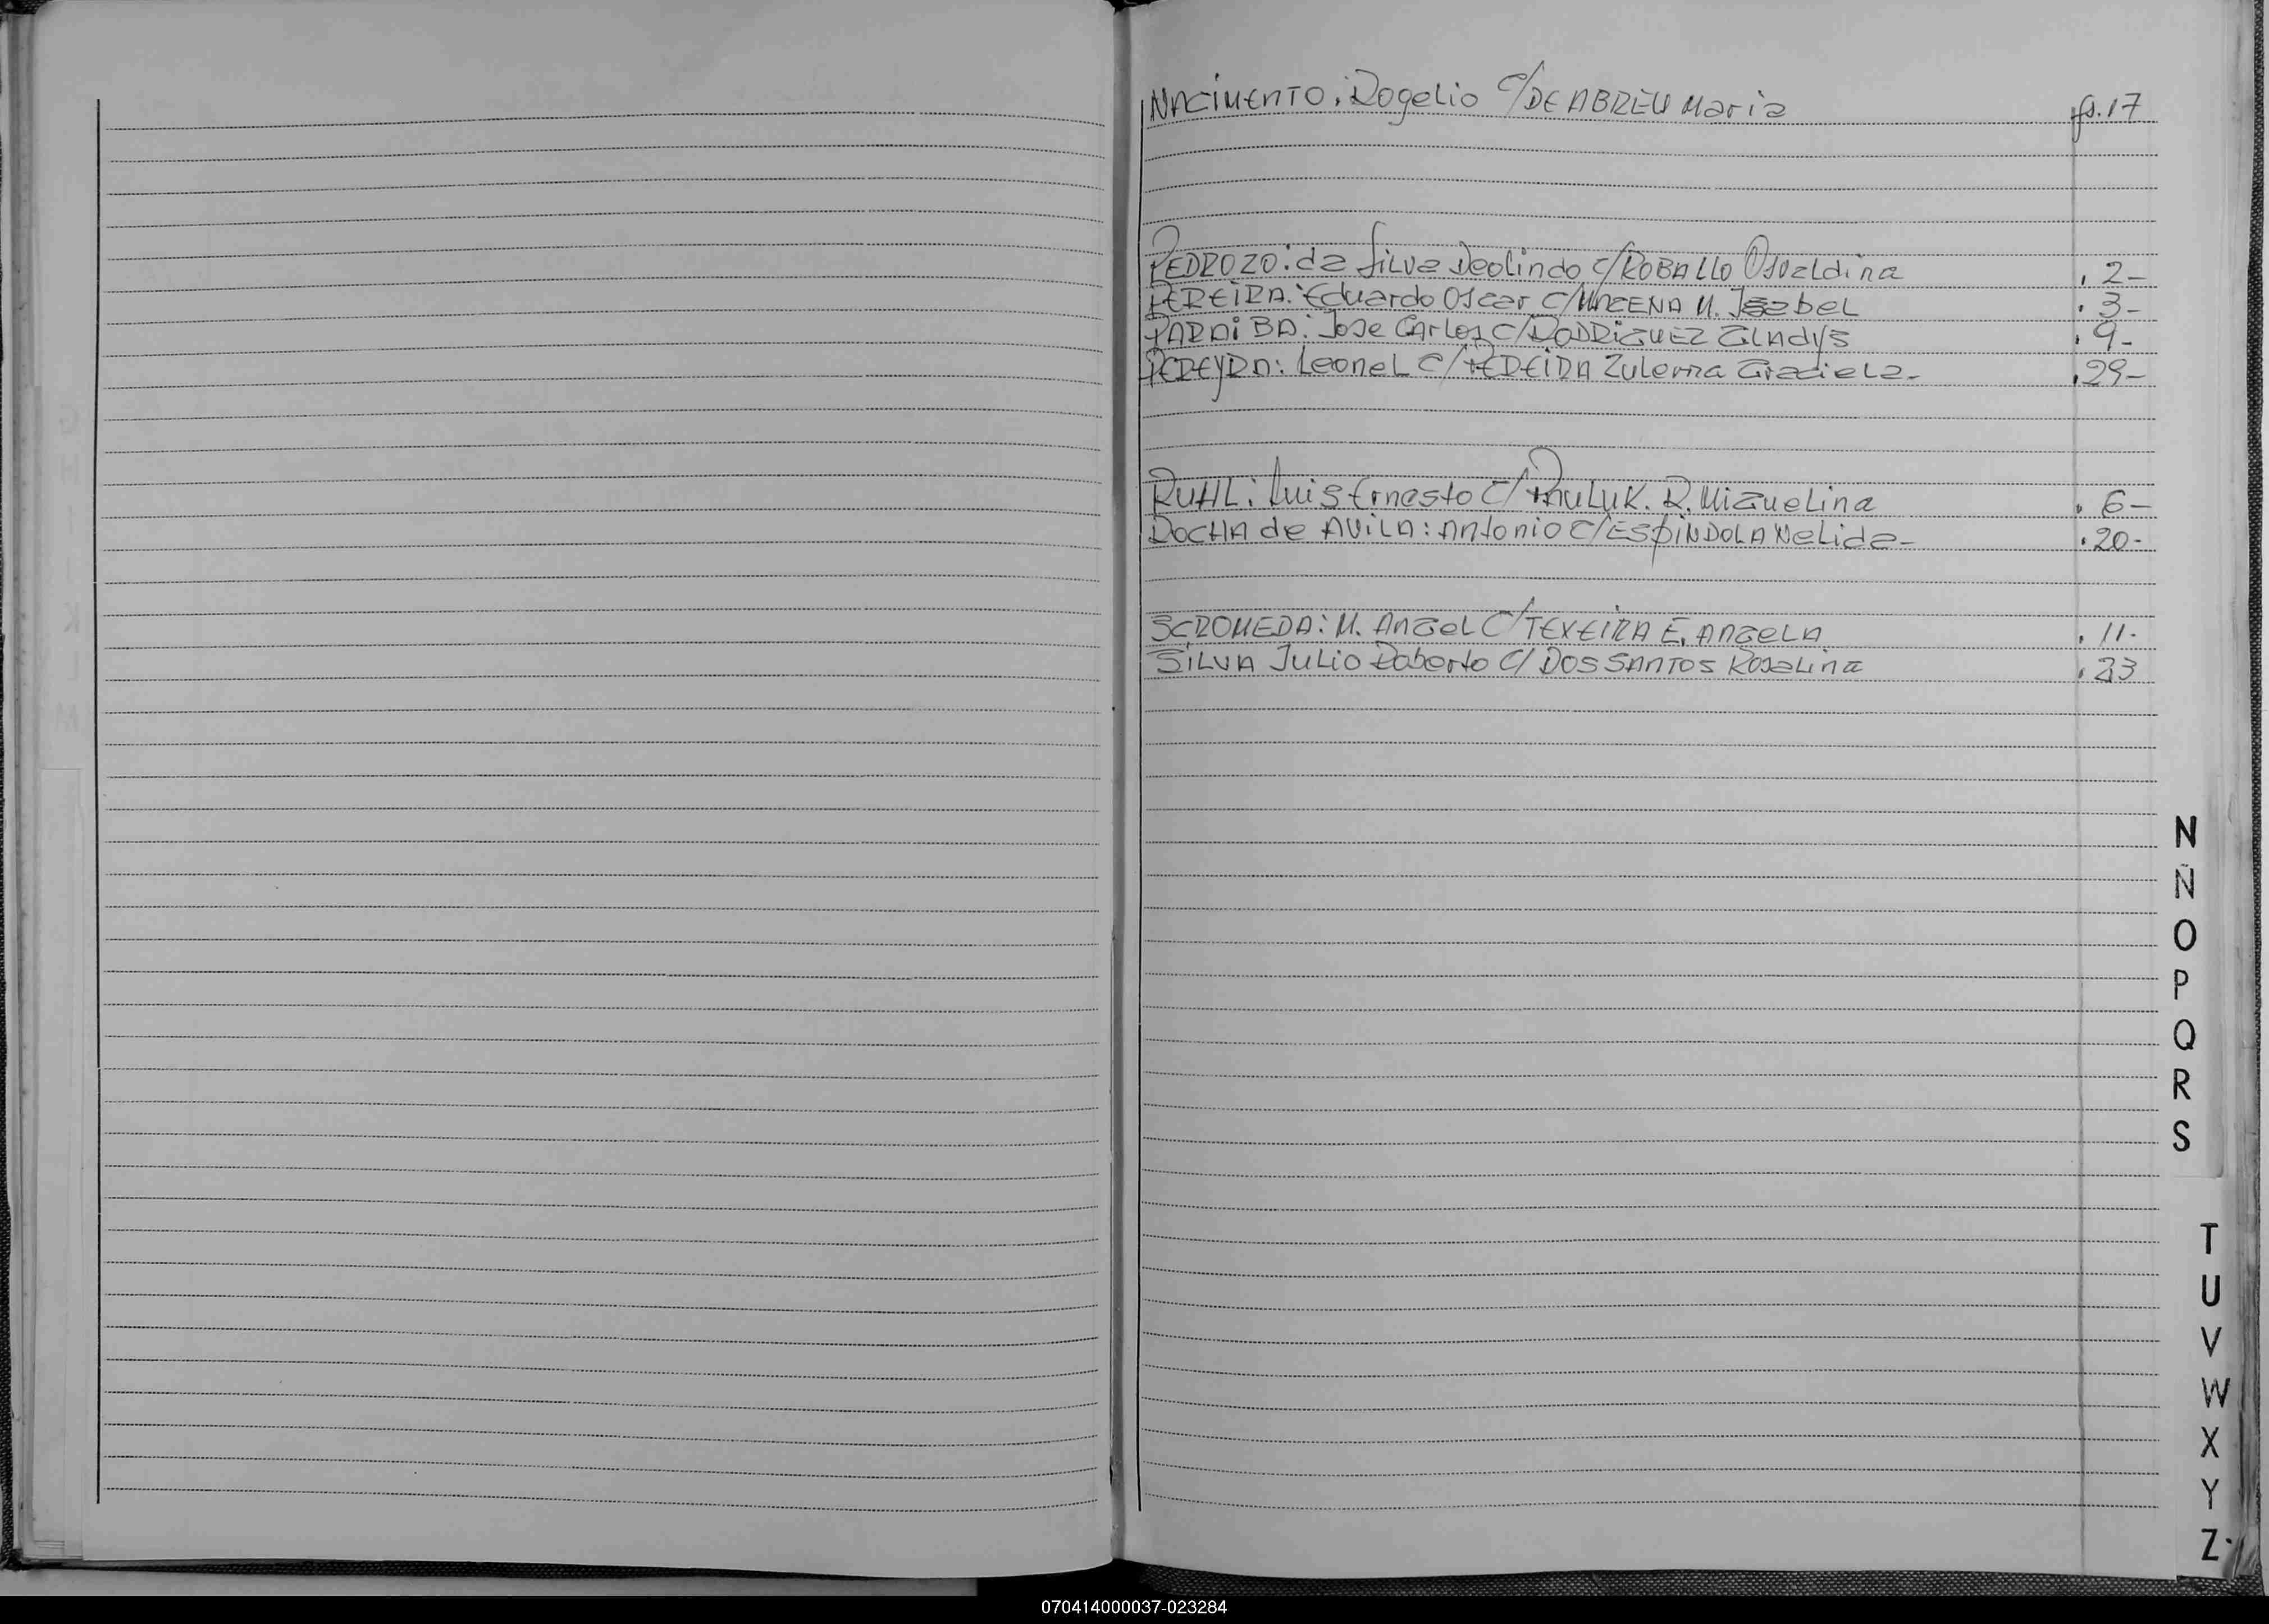 NACIMENTO. Rogelio C/DE ABREU Maria fs. 17
PEDROZO: da Silva Deolindo C/ROBALLO Osvaldina " 2-
PEREIRA: Eduardo Oscar C/ M. Isabel " 3-
PARAIBA: Jose Carlos C/RODRIGUEZ Gladys " 9-
PEREYRA: Leonel C/PEREIRA Zulema Graciela- " 29-
RUHL: Luis Ernesto C/ R. Miguelina " 6-
ROCHA de AVILA: Antonio C/ESPINDOLA Nelida- " 20-
SCROMEDA: M. Angel C/TEXEIRA E. Angela " 11-
SILVA Julio Roberto C/ DOS SANTOS Rosalina " 23
N
Ñ
O
P
Q
R
S
T
U
V
W
X
Y
Z
070414000037-023284